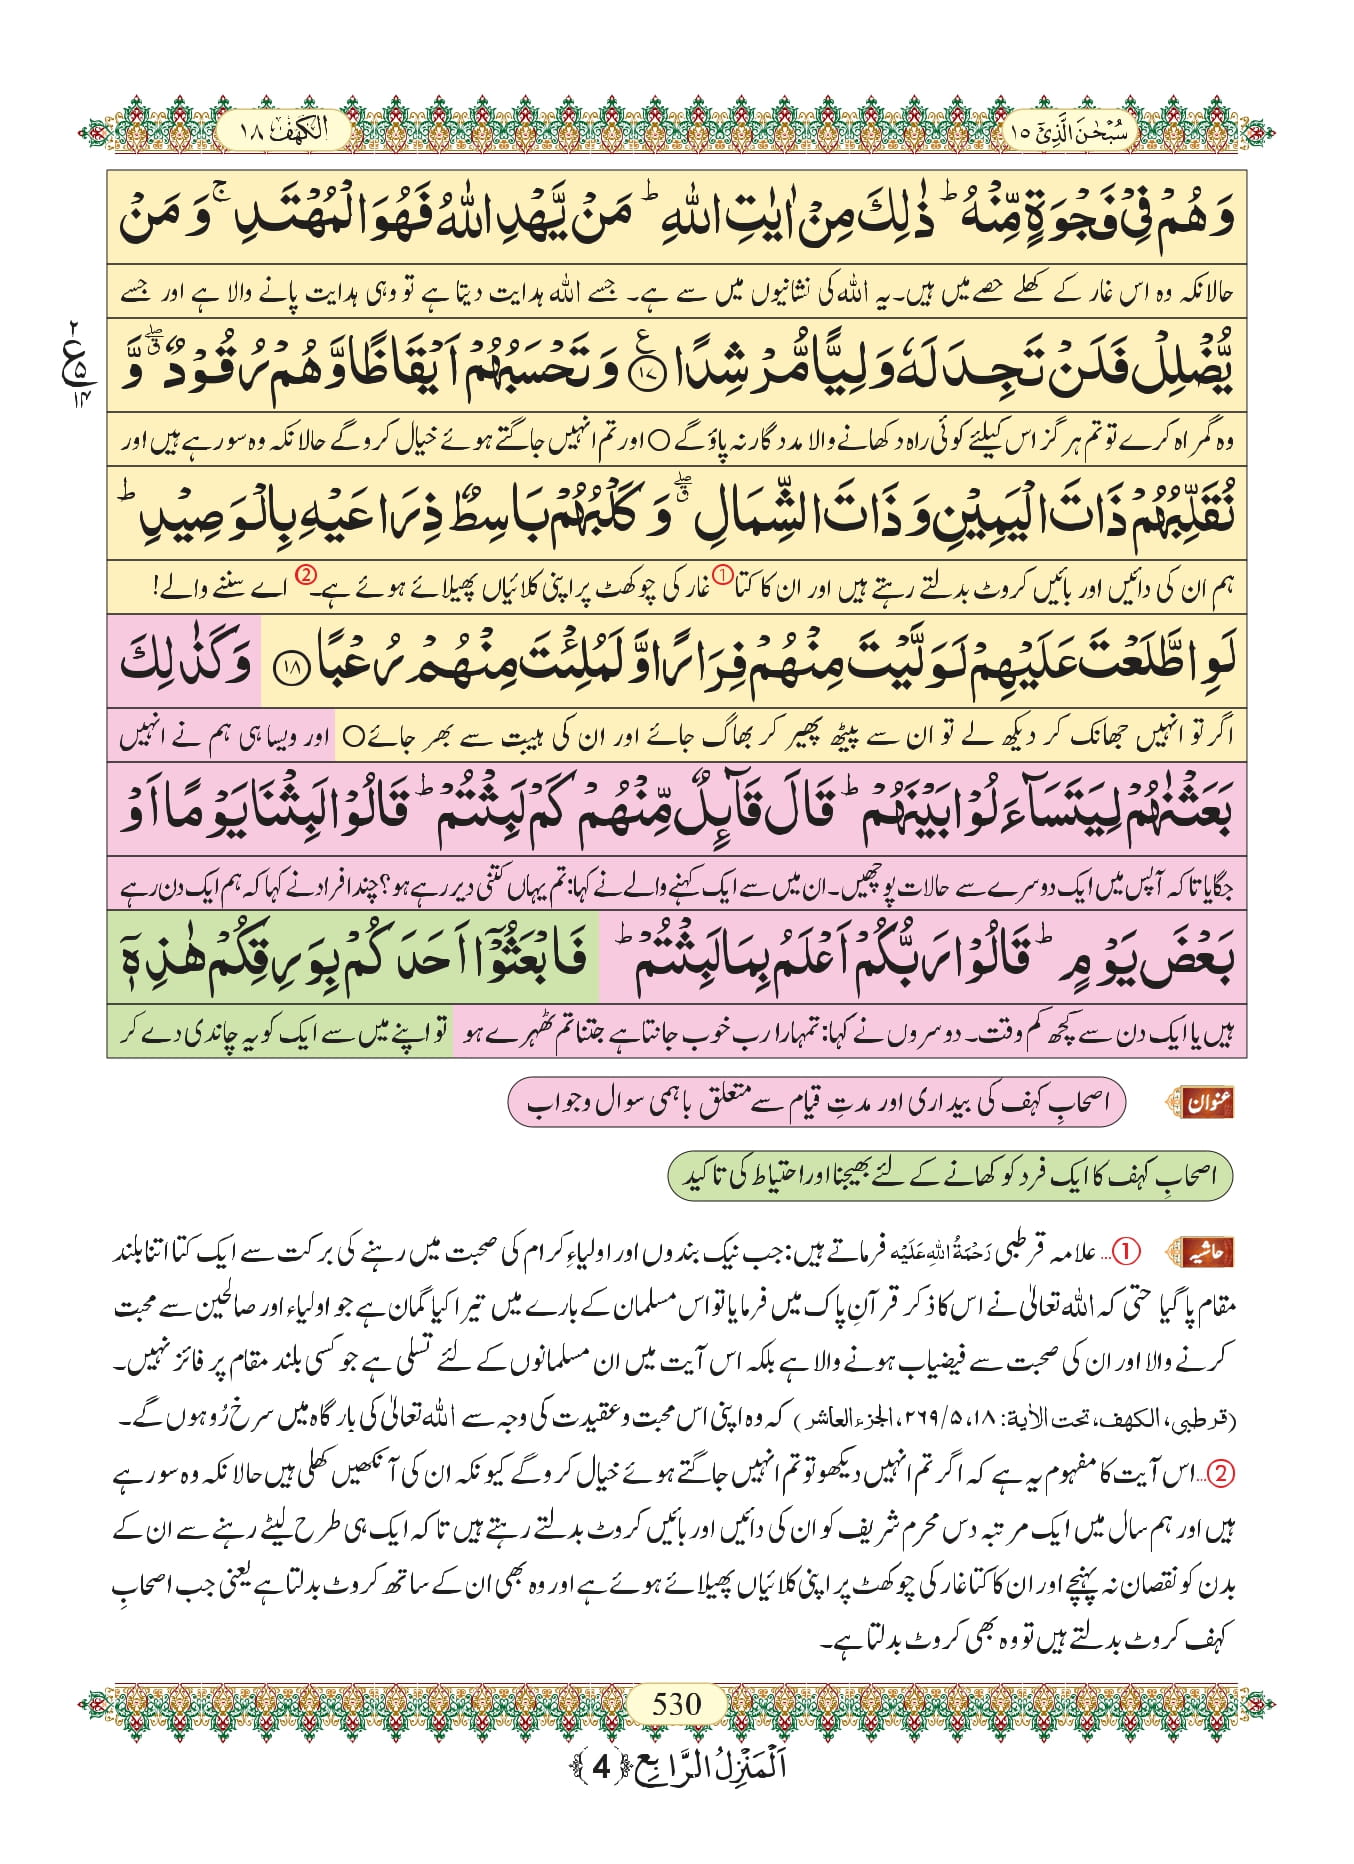 سُبْحٰنَ الَّذِیْۤ ۱۵
الكهف ۱۸
وَ هُمْ فِیْ فَجْوَةٍ مِّنْهُؕ ذٰلِكَ مِنْ اٰیٰتِ اللّٰهِؕ مَنْ یَّهْدِ اللّٰهُ فَهُوَ الْمُهْتَدِۚ وَ مَنْ
حالانکہ وہ اس غار کے کھلے حصے میں ہیں۔ یہ اللہ کی نشانیوں میں سے ہے۔ جسے اللہ ہدایت دیتا ہے تو وہی ہدایت پانے والا ہے اور جسے
یُّضْلِلْ فَلَنْ تَجِدَ لَهٗ وَلِیًّا مُّرْشِدًا۠ ﴿۱۷﴾ وَ تَحْسَبُهُمْ اَیْقَاظًا وَّ هُمْ رُقُوْدٌ ۖۗ وَّ
۲ ع ۵ ۱۴
وہ گمراہ کرے تو تم ہر گز اس کیلئے کوئی راہ دکھانے والا مددگار نہ پاؤ گے ○ اور تم انہیں جاگتے ہوئے خیال کرو گے حالانکہ وہ سو رہے ہیں اور
نُقَلِّبُهُمْ ذَاتَ الْیَمِیْنِ وَ ذَاتَ الشِّمَالِ ۖۗ وَ كَلْبُهُمْ بَاسِطٌ ذِرَاعَیْهِ بِالْوَصِیْدِؕ
ہم ان کی دائیں اور بائیں کروٹ بدلتے رہتے ہیں اور ان کا کتا① غار کی چوکھٹ پر اپنی کلائیاں پھیلائے ہوئے ہے۔② اے سننے والے!
لَوِ اطَّلَعْتَ عَلَیْهِمْ لَوَلَّیْتَ مِنْهُمْ فِرَارًا وَّ لَمُلِئْتَ مِنْهُمْ رُعْبًا ﴿۱۸﴾ وَ كَذٰلِكَ
اگر تو انہیں جھانک کر دیکھ لے تو ان سے پیٹھ پھیر کر بھاگ جائے اور ان کی ہیبت سے بھر جائے ○ اور ویسا ہی ہم نے انہیں
بَعَثْنٰهُمْ لِیَتَسَآءَلُوْا بَیْنَهُمْؕ قَالَ قَآىٕلٌ مِّنْهُمْ كَمْ لَبِثْتُمْؕ قَالُوْا لَبِثْنَا یَوْمًا اَوْ
جگایا تاکہ آپس میں ایک دوسرے سے حالات پوچھیں۔ ان میں سے ایک کہنے والے نے کہا: تم یہاں کتنی دیر رہے ہو؟ چند افراد نے کہا کہ ہم ایک دن رہے
بَعْضَ یَوْمٍؕ قَالُوْا رَبُّكُمْ اَعْلَمُ بِمَا لَبِثْتُمْؕ فَابْعَثُوْۤا اَحَدَكُمْ بِوَرِقِكُمْ هٰذِهٖۤ
ہیں یا ایک دن سے کچھ کم وقت۔ دوسروں نے کہا: تمہارا رب خوب جانتا ہے جتنا تم ٹھہرے ہو تو اپنے میں سے ایک کو یہ چاندی دے کر
عنوان اصحابِ کہف کی بیداری اور مدتِ قیام سے متعلق باہمی سوال و جواب
اصحابِ کہف کا ایک فرد کو کھانے کے لئے بھیجنا اور احتیاط کی تاکید
حاشیہ ①... علامہ قرطبی رَحْمَةُ اللهِ عَلَيْه فرماتے ہیں: جب نیک بندوں اور اولیاءِ کرام کی صحبت میں رہنے کی برکت سے ایک کتا اتنا بلند
مقام پا گیا حتی کہ اللہ تعالیٰ نے اس کا ذکر قرآنِ پاک میں فرمایا تو اس مسلمان کے بارے میں تیرا کیا گمان ہے جو اولیاء اور صالحین سے محبت
کرنے والا اور ان کی صحبت سے فیضیاب ہونے والا ہے بلکہ اس آیت میں ان مسلمانوں کے لئے تسلی ہے جو کسی بلند مقام پر فائز نہیں۔
(قرطبی، الکهف، تحت الآیة: ۱۸، ۵/۲۶۹، الجزء العاشر) کہ وہ اپنی اس محبت و عقیدت کی وجہ سے اللہ تعالیٰ کی بارگاہ میں سرخ رُو ہوں گے۔
②... اس آیت کا مفہوم یہ ہے کہ اگر تم انہیں دیکھو تو تم انہیں جاگتے ہوئے خیال کرو گے کیونکہ ان کی آنکھیں کھلی ہیں حالانکہ وہ سو رہے
ہیں اور ہم سال میں ایک مرتبہ دس محرم شریف کو ان کی دائیں اور بائیں کروٹ بدلتے رہتے ہیں تاکہ ایک ہی طرح لیٹے رہنے سے ان کے
بدن کو نقصان نہ پہنچے اور ان کا کتا غار کی چوکھٹ پر اپنی کلائیاں پھیلائے ہوئے ہے اور وہ بھی ان کے ساتھ کروٹ بدلتا ہے یعنی جب اصحابِ
کہف کروٹ بدلتے ہیں تو وہ بھی کروٹ بدلتا ہے۔
530
اَلْمَنْزِلُ الرَّابِع ﴿4﴾